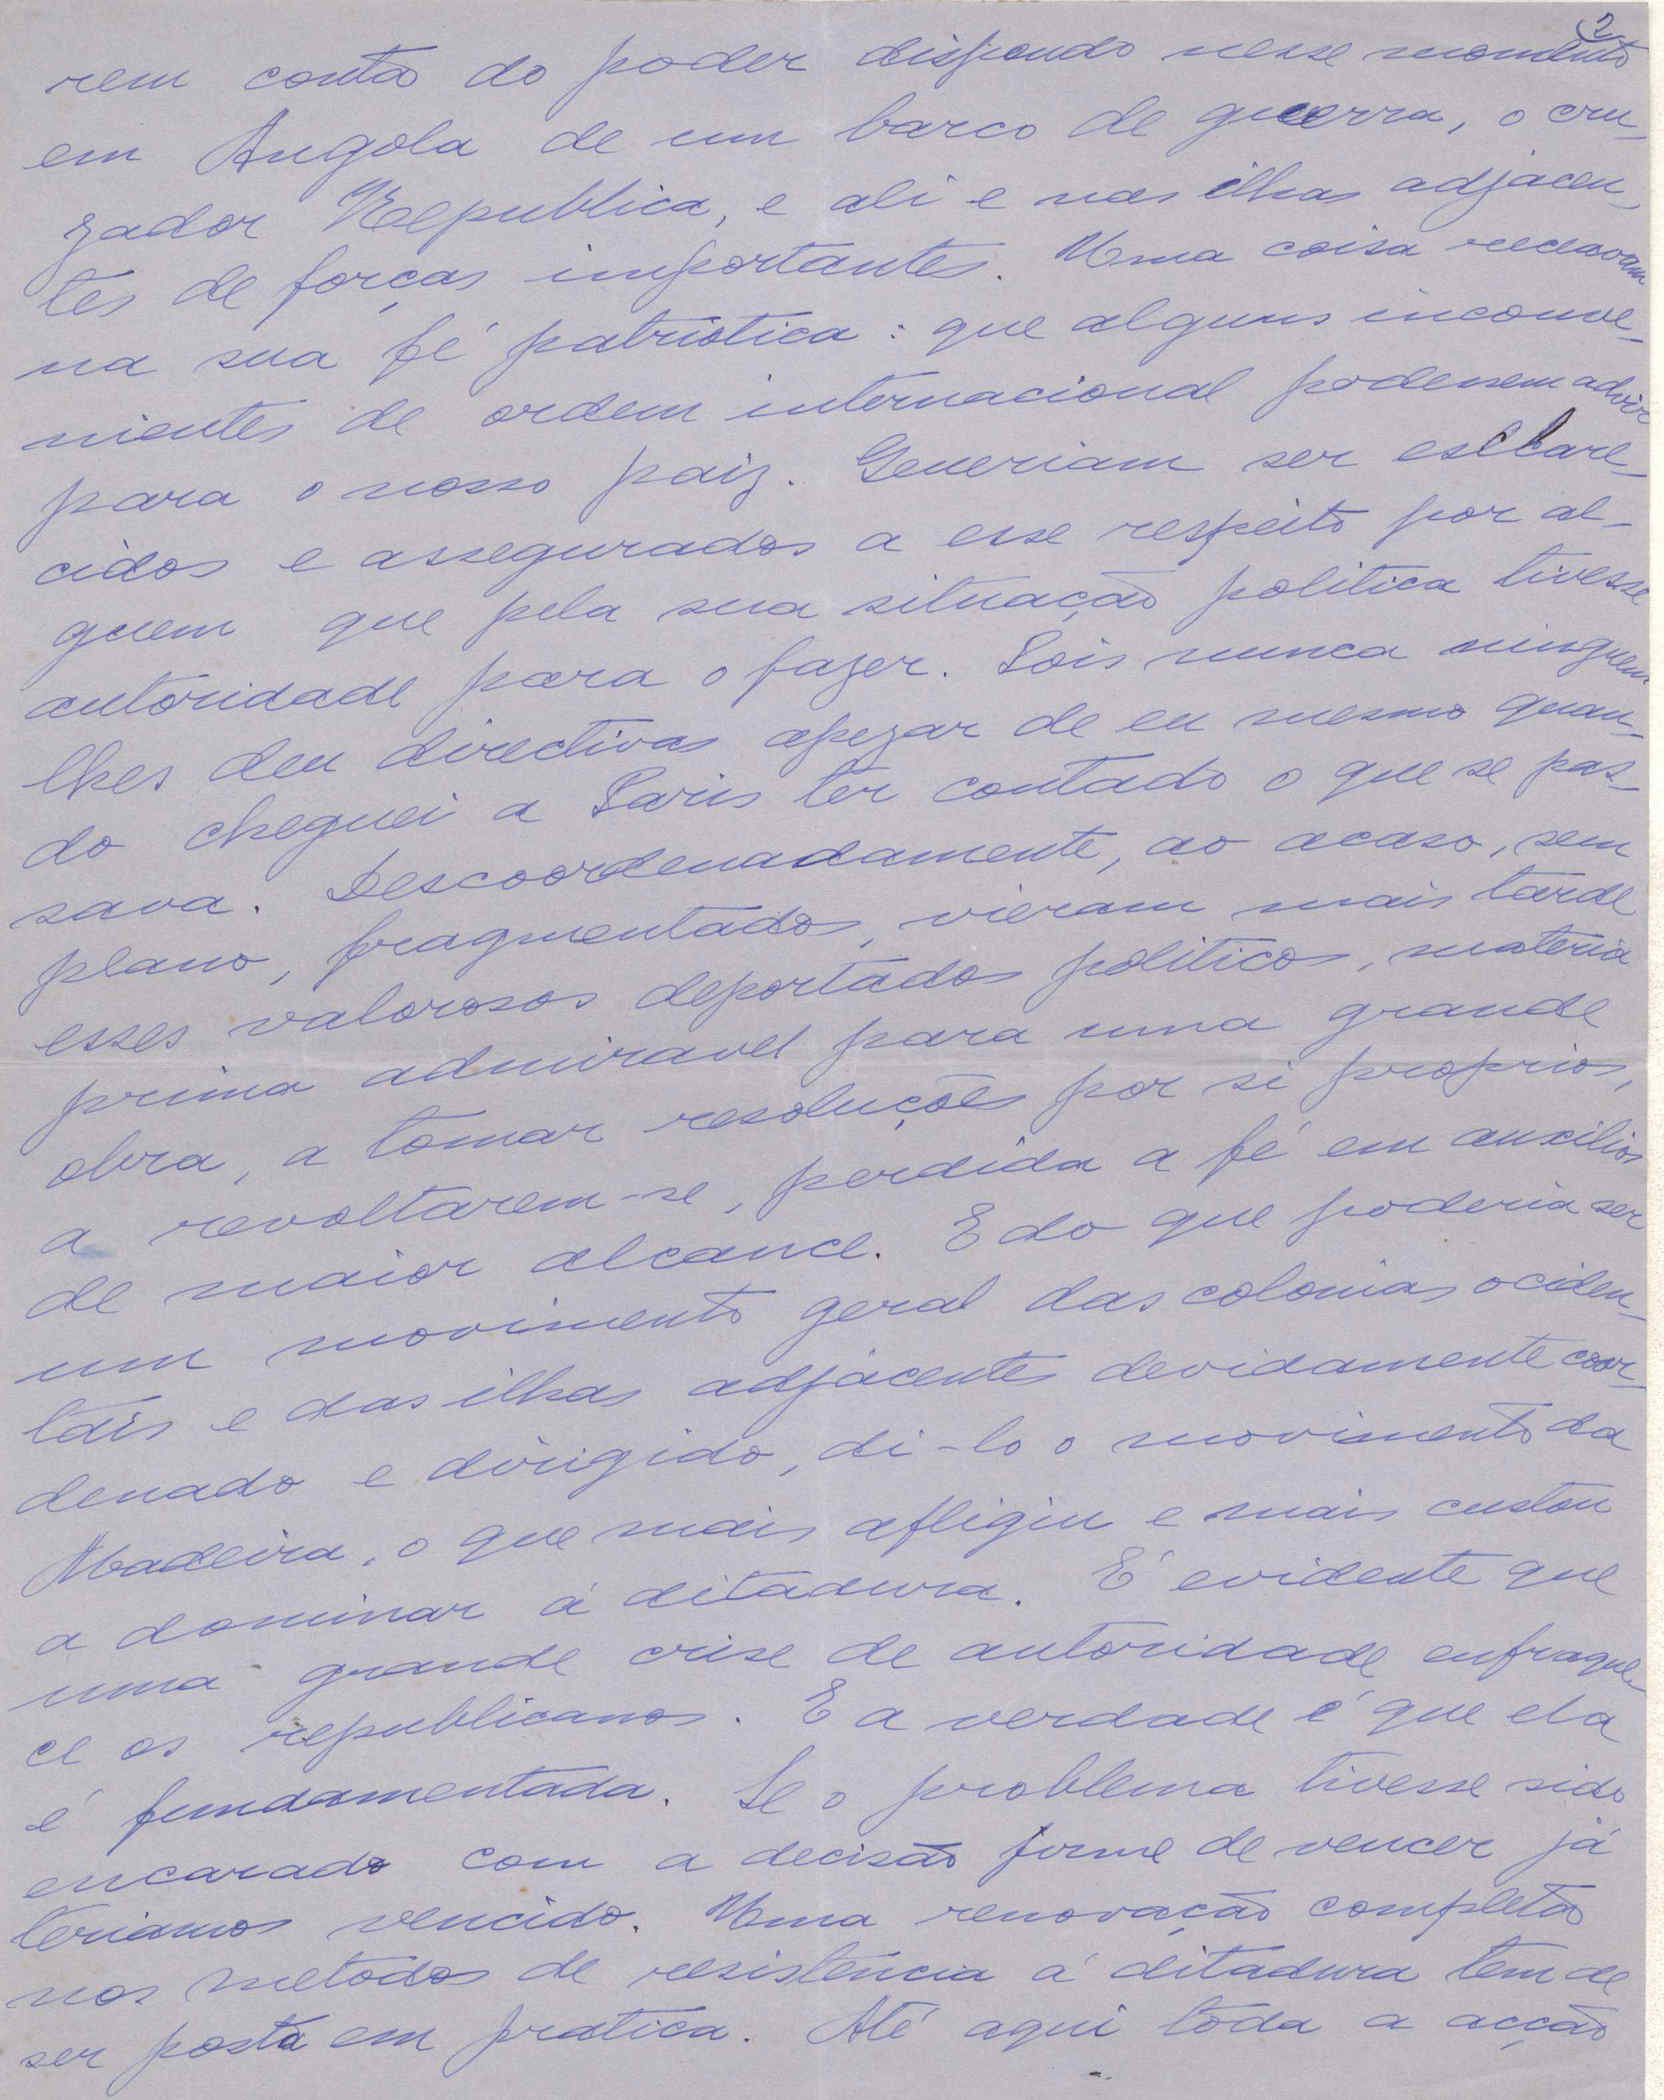 2
rem conta do poder dispondo nesse momento
em Angola de um barco de guerra, o cru-
zador Republica, e ali e nas ilhas adjacen-
tes de forças importantes. Uma coisa receavam
na sua fé patriotica: que alguns inconve-
nientes de ordem internacional podessem advir
para o nosso paiz. Queriam ser esclare-
cidos e assegurados a esse respeito por al-
guem que pela sua situação politica tivesse
autoridade para o fazer. Pois nunca ninguem
lhes deu directivas apezar de eu mesmo quan-
do cheguei a Paris ter contado o que se pas-
sava. Descoordenadamente, ao acaso, sem
plano, fragmentados, vieram mais tarde
esses valorosos deportados politicos, materia
prima admiravel para uma grande
obra, a tomar resoluções por si proprios,
a revoltarem-se, perdida a fé em auxilios
de maior alcance. E do que poderia ser
um movimento geral das colonias ociden-
tais e das ilhas adjacentes devidamente coor-
denado e dirigido, di-lo o movimento da
Madeira, o que mais afligiu e mais custou
a dominar á ditadura. É evidente que
uma grande crise de autoridade enfraque-
ce os republicanos. E a verdade é que ela
é fundamentada. Se o problema tivesse sido
encarado com a decisão firme de vencer já
teriamos vencido. Uma renovação completa
nos metodos de resistencia á ditadura tem de
ser posta em pratica. Até aqui toda a acção